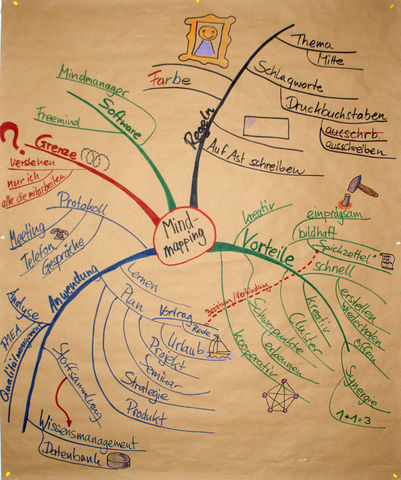 Mind-
mapping
Regeln
Thema
Mitte
Schlagworte
Druckbuchstaben
ausschreiben
Farbe
Auf Ast schreiben
Software
Mindmanager
Freemind
Grenze
?
verstehen
nur ich
alle die mitarbeiten
Vorteile
kreativ
einprägsam
bildhaft
"Spickzettel"
schnell
erstellen
wiederholen
offen
Synergie
1+1=3
kreativ
Cluster
Schwerpunkte
erkennen
kooperativ
Anwendung
Protokoll
Meeting
Telefon
Gespräche
Lernen
Plan
Vortrag
Rede
Urlaub
Projekt
Seminar
Strategie
Produkt
Analyse
FMEA
Qualitätsmanagement
Stoffsammlung
Wissensmanagement
Datenbank